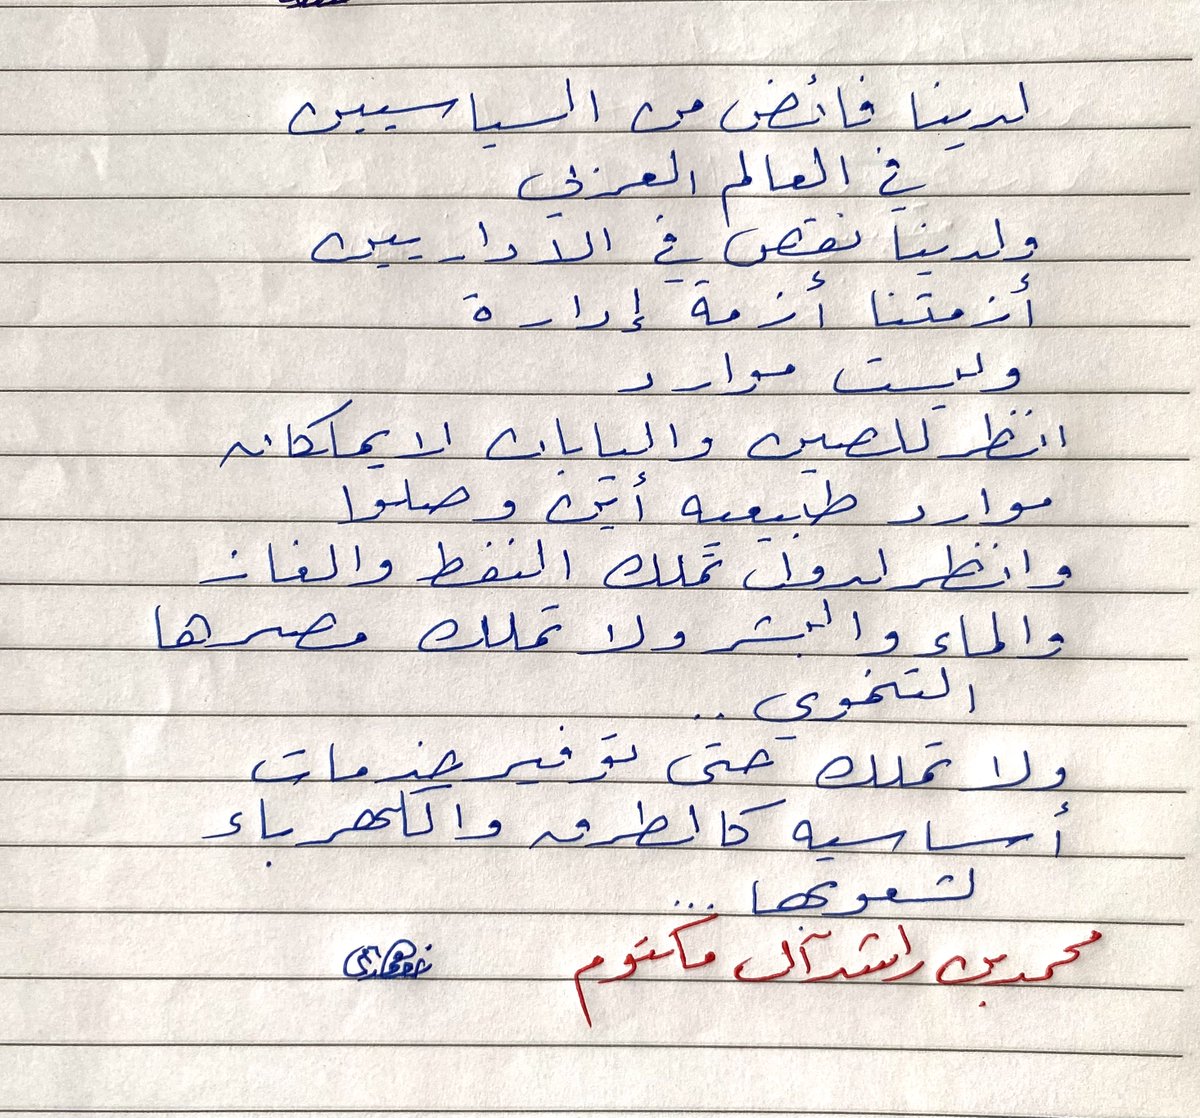 لدينا فائض من السياسيين
في العالم العربي
ولدينا نقص في الاداريين
أزمتنا أزمة إدارة
وليست موارد
انظر للصين واليابان لا يملكان
موارد طبيعيه أين وصلوا
وانظر لدول تملك النفط والغاز
والماء والبشر ولا تملك مصيرها
التنموي ..
ولا تملك حتى توفير خدمات
أساسيه كالطرق والكهرباء
لشعوبها ...
محمد بن راشد آل مكتوم